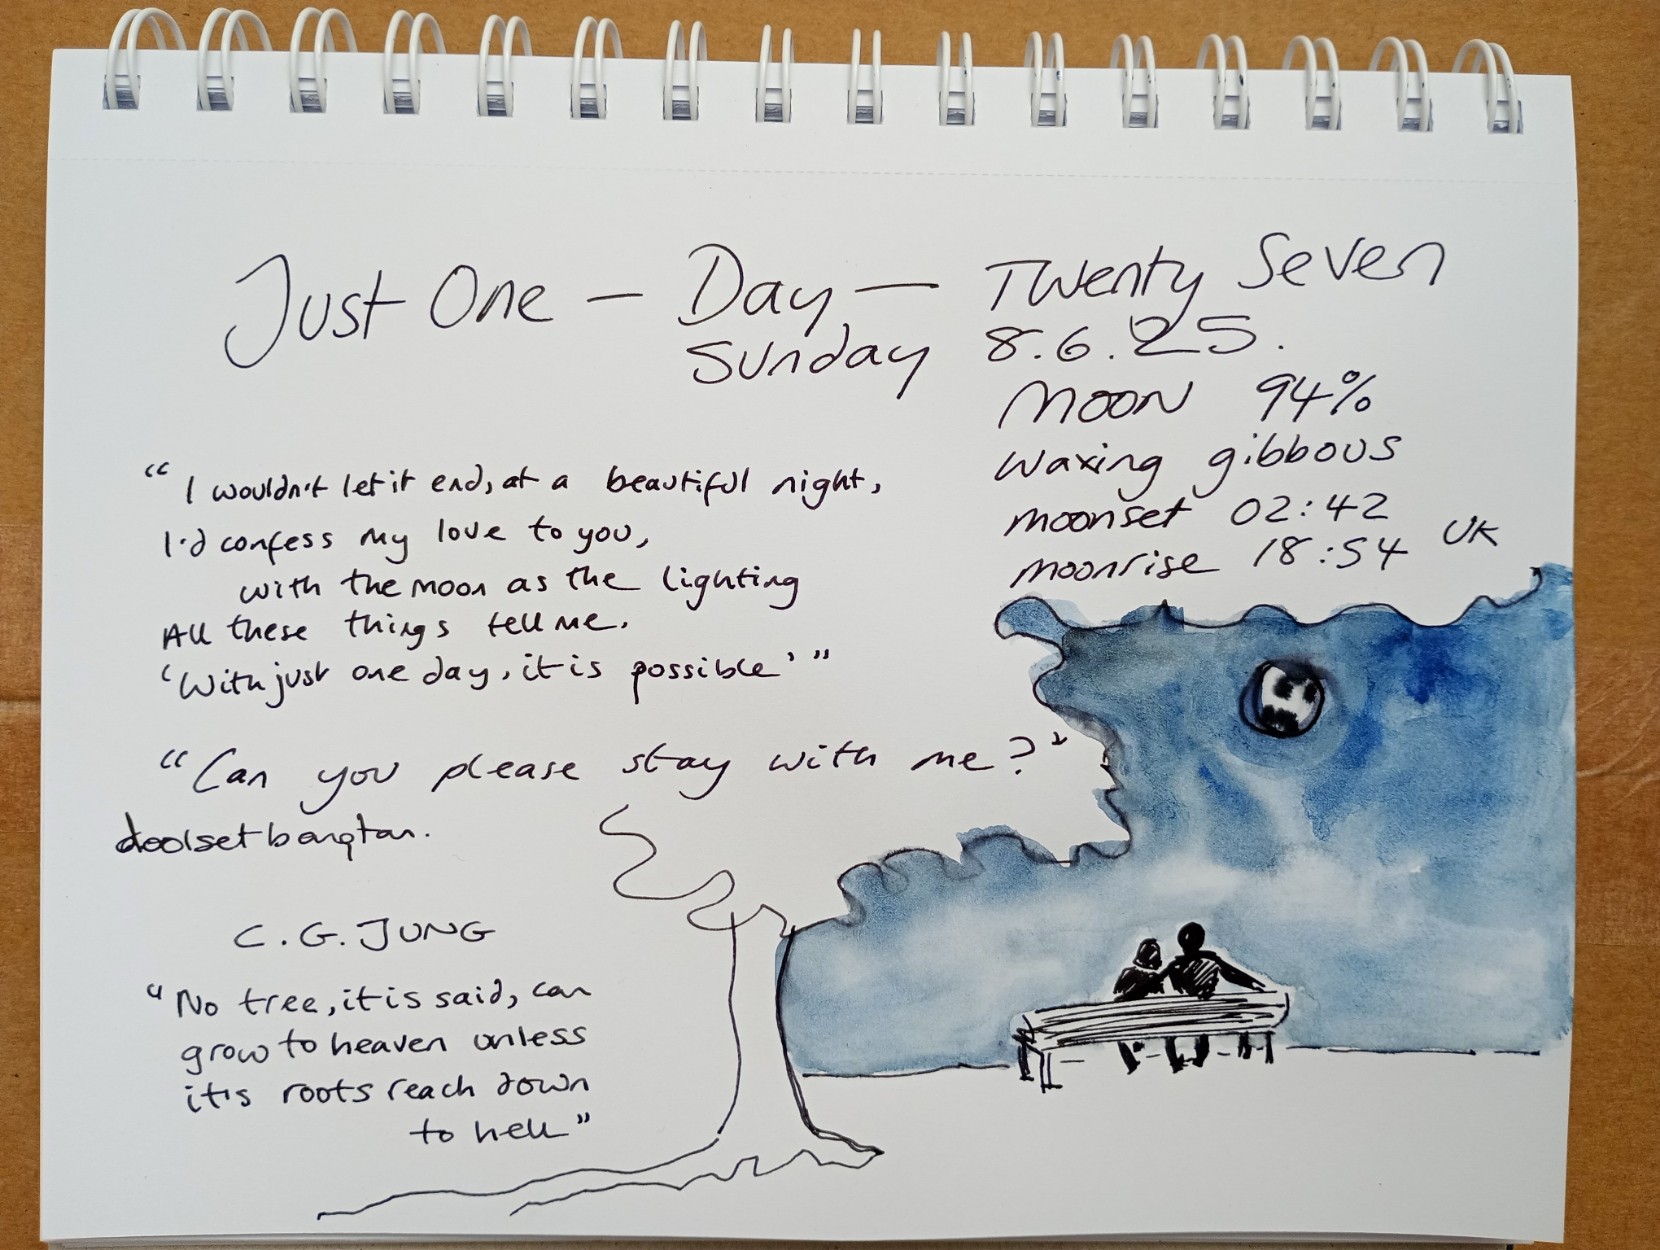 Just One — Day — Twenty Seven
Sunday 8.6.25.
Moon 94%
waxing gibbous
moonset 02:42
moonrise 18:54 UK
“I wouldn't let it end, at a beautiful night,
I'd confess my love to you,
with the moon as the lighting
All these things tell me.
‘With just one day, it is possible’”
“Can you please stay with me?”
doolsetbangtan.
C.G. JUNG
“No tree, it is said, can
grow to heaven unless
it's roots reach down
to hell”